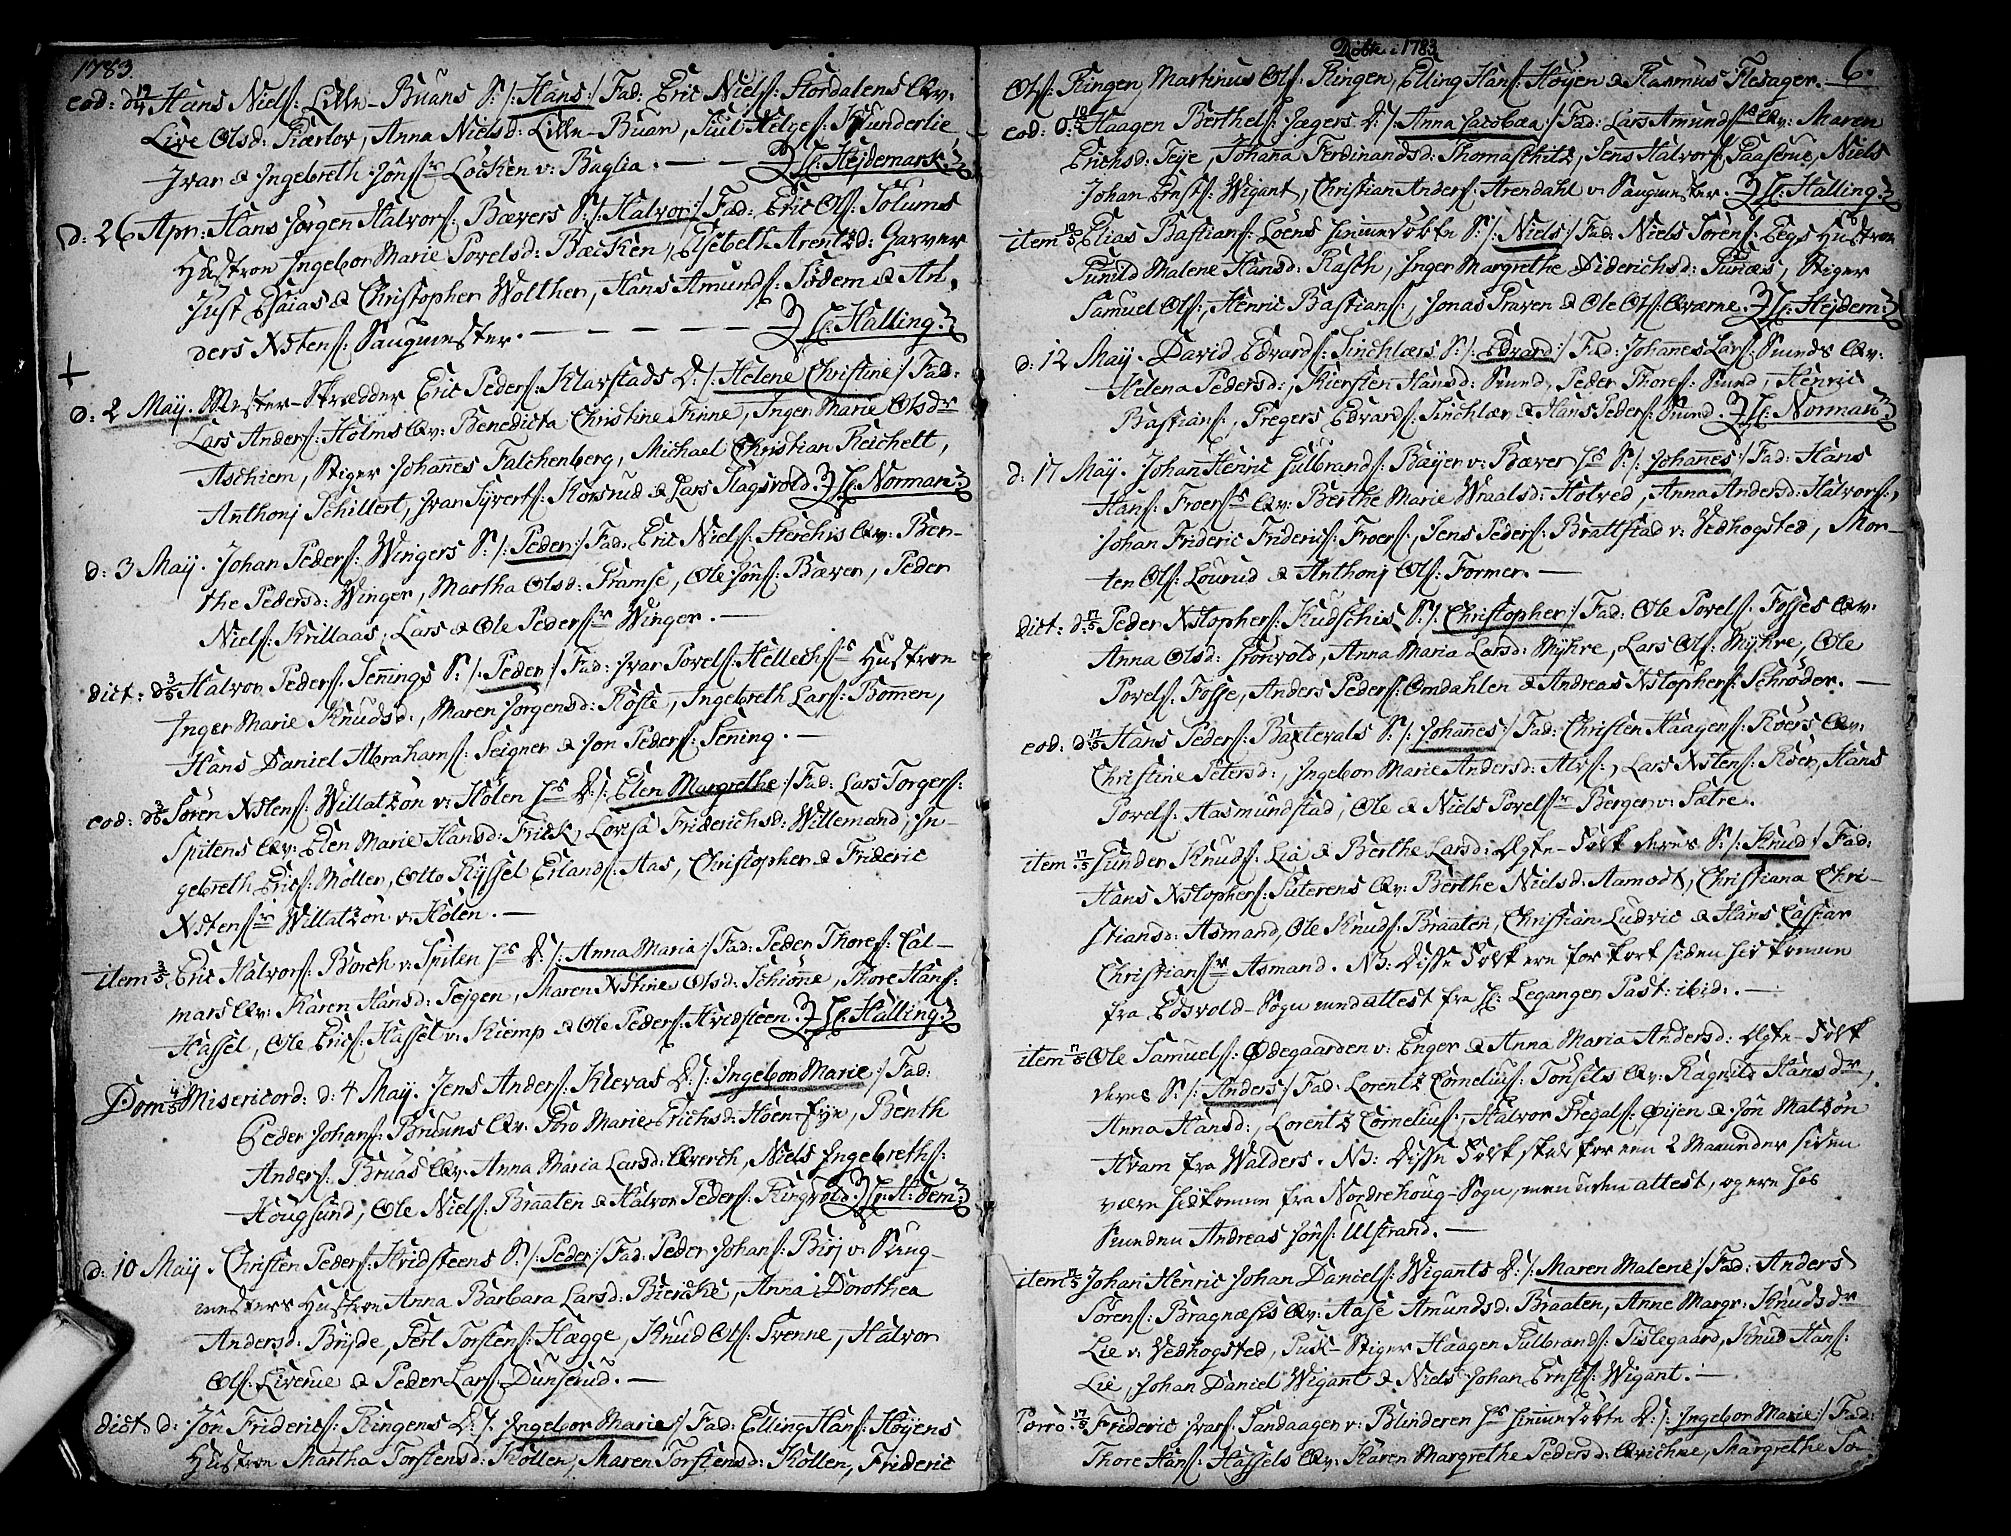 1783.
eod: d 19/4 Hans Niels: Lille-Buans S: /: Hans :/ Fad: Eric Niels: Stordalens Qv:
Live Olsd: Kiærlov, Anna Nielsd: Lille-Buan, Juul Helges: Kunderlie,
Ivar & Ingebreth Jons:r Løcken v: Baglia. — — H: Hejdemark.
d: 26 Apr: Hans Jørgen Halvors: Bævers S: /: Halvor :/ Fad: Eric Ols: Solums
Hustroe Ingebor Marie Povelsd: Bæcken, Elsebeth Arentzd: Garver
Just Esaias & Christopher Wolther, Hans Amunds: Sødem & An-
ders Xstens: Saugmester. — — — — — H: Halling.
d: 2 May. Mester-Skrædder Eric Peders: Klavstads D: /: Helene Christine :/ Fad:
Lars Anders: Holms Qv: Benedicta Christine Finne, Inger Marie Olsdr
Aschiem, Stiger Johannes Falchenberg, Michael Christian Reichelt,
Anthonj Schillert, Ivar Syverts: Korsrud & Lars Flagsvold. H: Norman.
d: 3 May. Johan Peders: Wingers S: /: Peder :/ Fad: Eric Niels: Sterchis Qv: Ber-
the Pedersd: Winger, Martha Olsd: Pramse, Ole Jons: Bæver, Peder
Niels: Krillaas, Lars & Ole Peders:r Winger. —
dict: d 3/5 Halvor Peders: Jennings S: /: Peder :/ Fad: Ivar Povels: Hellechs:s Hustroe
Inger Marie Knudsd:, Maren Jorgensd: Røste, Ingebreth Lars: Bomen,
Hans Daniel Abrahams: Seigner & Jon Peders: Jening. —
eod: d 3/5 Søren Xstens: Willatzøn v: Hølen Hs D: /: Elen Margrethe :/ Fad: Lars Torgers:
Spitens Qv: Elen Marie Hansd: Frick, Lovisa Friderichsd: Willemand, In-
gebreth Erics: Møller, Otto Ryssel Erlands: Aas, Christopher & Frideric
Xstens:r Willatzøn v: Hølen. —
item 3/5 Eric Halvors: Borch v: Spiten Hs D: /: Anna Maria :/ Fad: Peder Thores: Cal-
mars Qv: Karen Hansd: Tejgen, Maren Xstine Olsd: Schiønne, Thore Hans:
Hassel, Ole Erics: Hassel v: Kiemp & Ole Peders: Hvidsteen. H: Halling.
Dom 4/5 Misericord: d: 4 May. Jens Anders: Klevas D: /: Ingebor Marie :/ Fad:
Peder Johans: Bruuns Qv: Pero Marie Erichsd: Høen-Eye, Benth
Anders: Bruas Qv: Anna Maria Larsd: Qverch, Niels Ingebreths:
Hougsund, Ole Niels: Braaten & Halvor Peders: Ringvold. H: Hdem:
d: 10 May. Christen Peders: Hvidsteens S: /: Peder :/ Fad: Peder Johans: Birj v: Saug-
mesters Hustroe Anna Barbara Larsd: Biercke, Anna Dorothea
Andersd: Bryde, Perl Torstens: Hægge, Knud Ols: Svenne, Halvor
Ols: Liverue & Peder Lars: Dunserud. —
dict: d: Jon Friderics: Ringens D: /: Ingebor Marie :/ Fad: Elling Hans: Høyens
Hustroe Martha Torstensd: Kollen, Maren Torstensd: Kollen, Frideric
Døbte. 1783 6.
Ols: Ringen, Martinus Ols: Ringen, Elling Hans: Høyen & Rasmus Flesager. —
eod: d: 10/5 Haagen Berthels: Jægers D: /: Anna Jacobæa :/ Fad: Lars Amunds:s Qv: Maren
Erichsd: Teje, Johana Ferdinandsd: Thomaschitz, Jens Halvors: Paaserue, Niels
Johan Ernsts: Wigant, Christian Anders: Arendahl v: Saugmester. H: Halling.
item 10/5 Elias Bastians: Loens hiemmedøbte S: /: Niels :/ Fad: Niels Sørens: Eegs Hustroe
Gunild Malene Hansd: Rasch, Inger Margrethe Diderichsd: Funæs, Stiger
Samuel Ols:, Henric Bastians:, Jonas Graven & Ole Ols: Qværne. H: Hejdem:
d: 12 May. David Edvards: Sinchlars S: /: Edvard :/ Fad: Johannes Lars: Sunds Qv:
Helena Pedersd:, Kiersten Hansd: Sund, Peder Thores: Sund, Henric
Bastians:, Gregers Edvards: Sinchlar & Hans Peders: Sund. H: Norman.
d: 17 May. Johan Henric Gulbrands: Bayer v: Bæver Hs S: /: Johannes :/ Fad: Hans
Hans: Froers:s Qv: Berthe Marie Wraalsd: Hotved, Anna Andersd: Halvors:,
Johan Frideric Friderics: Froers:, Jens Peders: Brattstad v: Vedhogsted, Mor-
ten Ols: Lourud & Anthonj Ols: Former. —
dict: d: 17/5 Peder Xstophers: Kudschis S: /: Christopher :/ Fad: Ole Povels: Fosses Qv:
Anna Olsd: Grønvold, Anna Maria Larsd: Myhre, Lars Ols: Myhre, Ole
Povels: Fosse, Anders Peders: Omdahlen & Andreas Xstophers: Schrøder. —
eod: d 17/5 Hans Peders: Baxtevals S: /: Johannes :/ Fad: Christen Haagens: Roers Qv:
Christine Petersd:, Ingebor Marie Andersd: Alvs:, Lars Xstens: Roer, Hans
Povels: Aasmundstad, Ole & Niels Povels:r Berger v: Sætre.
item 17/5 Gunder Knuds: Lia & Berthe Larsd: Ægte-Folk deres S: /: Knud :/ Fad:
Hans Xstophers: Suterens Qv: Berthe Nielsd: Aamodt, Christiana Chri-
stiansd: Asmand, Ole Knuds: Braaten, Christian Ludvic & Hans Caspar
Christians:r Asmand. NB: Disse Folk ere for kort siden hidkomne
fra Edsvold-Sogn med attest fra H: Legangen Past: ibid:. —
item 17/5 Ole Samuels: Ødegaarden v: Enger & Anna Maria Andersd: Ægte-Folk
deres S: /: Anders :/ Fad: Lorentz Cornelius: Tonsels Qv: Ragnild Hansdr,
Anna Hansd:, Lorentz Cornelius:, Halvor Gregals: Øijen & Jon Matzøn
Hvam fra Walders. NB: Disse Folk skal for een 2 Maaneder siden
være hidkomne fra Nordrehoug-Sogn, men uden attest, og ere hos
Svenden Andreas Jons: Ulstrand. —
item 17/5 Johan Henric Johan Daniels: Wigants D: /: Maren Malene :/ Fad: Anders
Sørens: Bragnæses Qv: Aase Amundsd: Braaten, Anne Margr: Knudsdr
Lie v: Vedhogsted, Puk-Stiger Haagen Gulbrands: Tislegaard, Knud Hans:
Lie, Johan Daniel Wigant & Niels Johan Ernsts: Wigant. —
Porro 17/5 Frideric Ivars: Sandaager v: Blinderen Hs hiemmedøbte D: /: Ingebor Marie :/ Fad:
Thore Hans: Hassels Qv: Karen Margrethe Pedersd: Qvichne, Margrethe To-